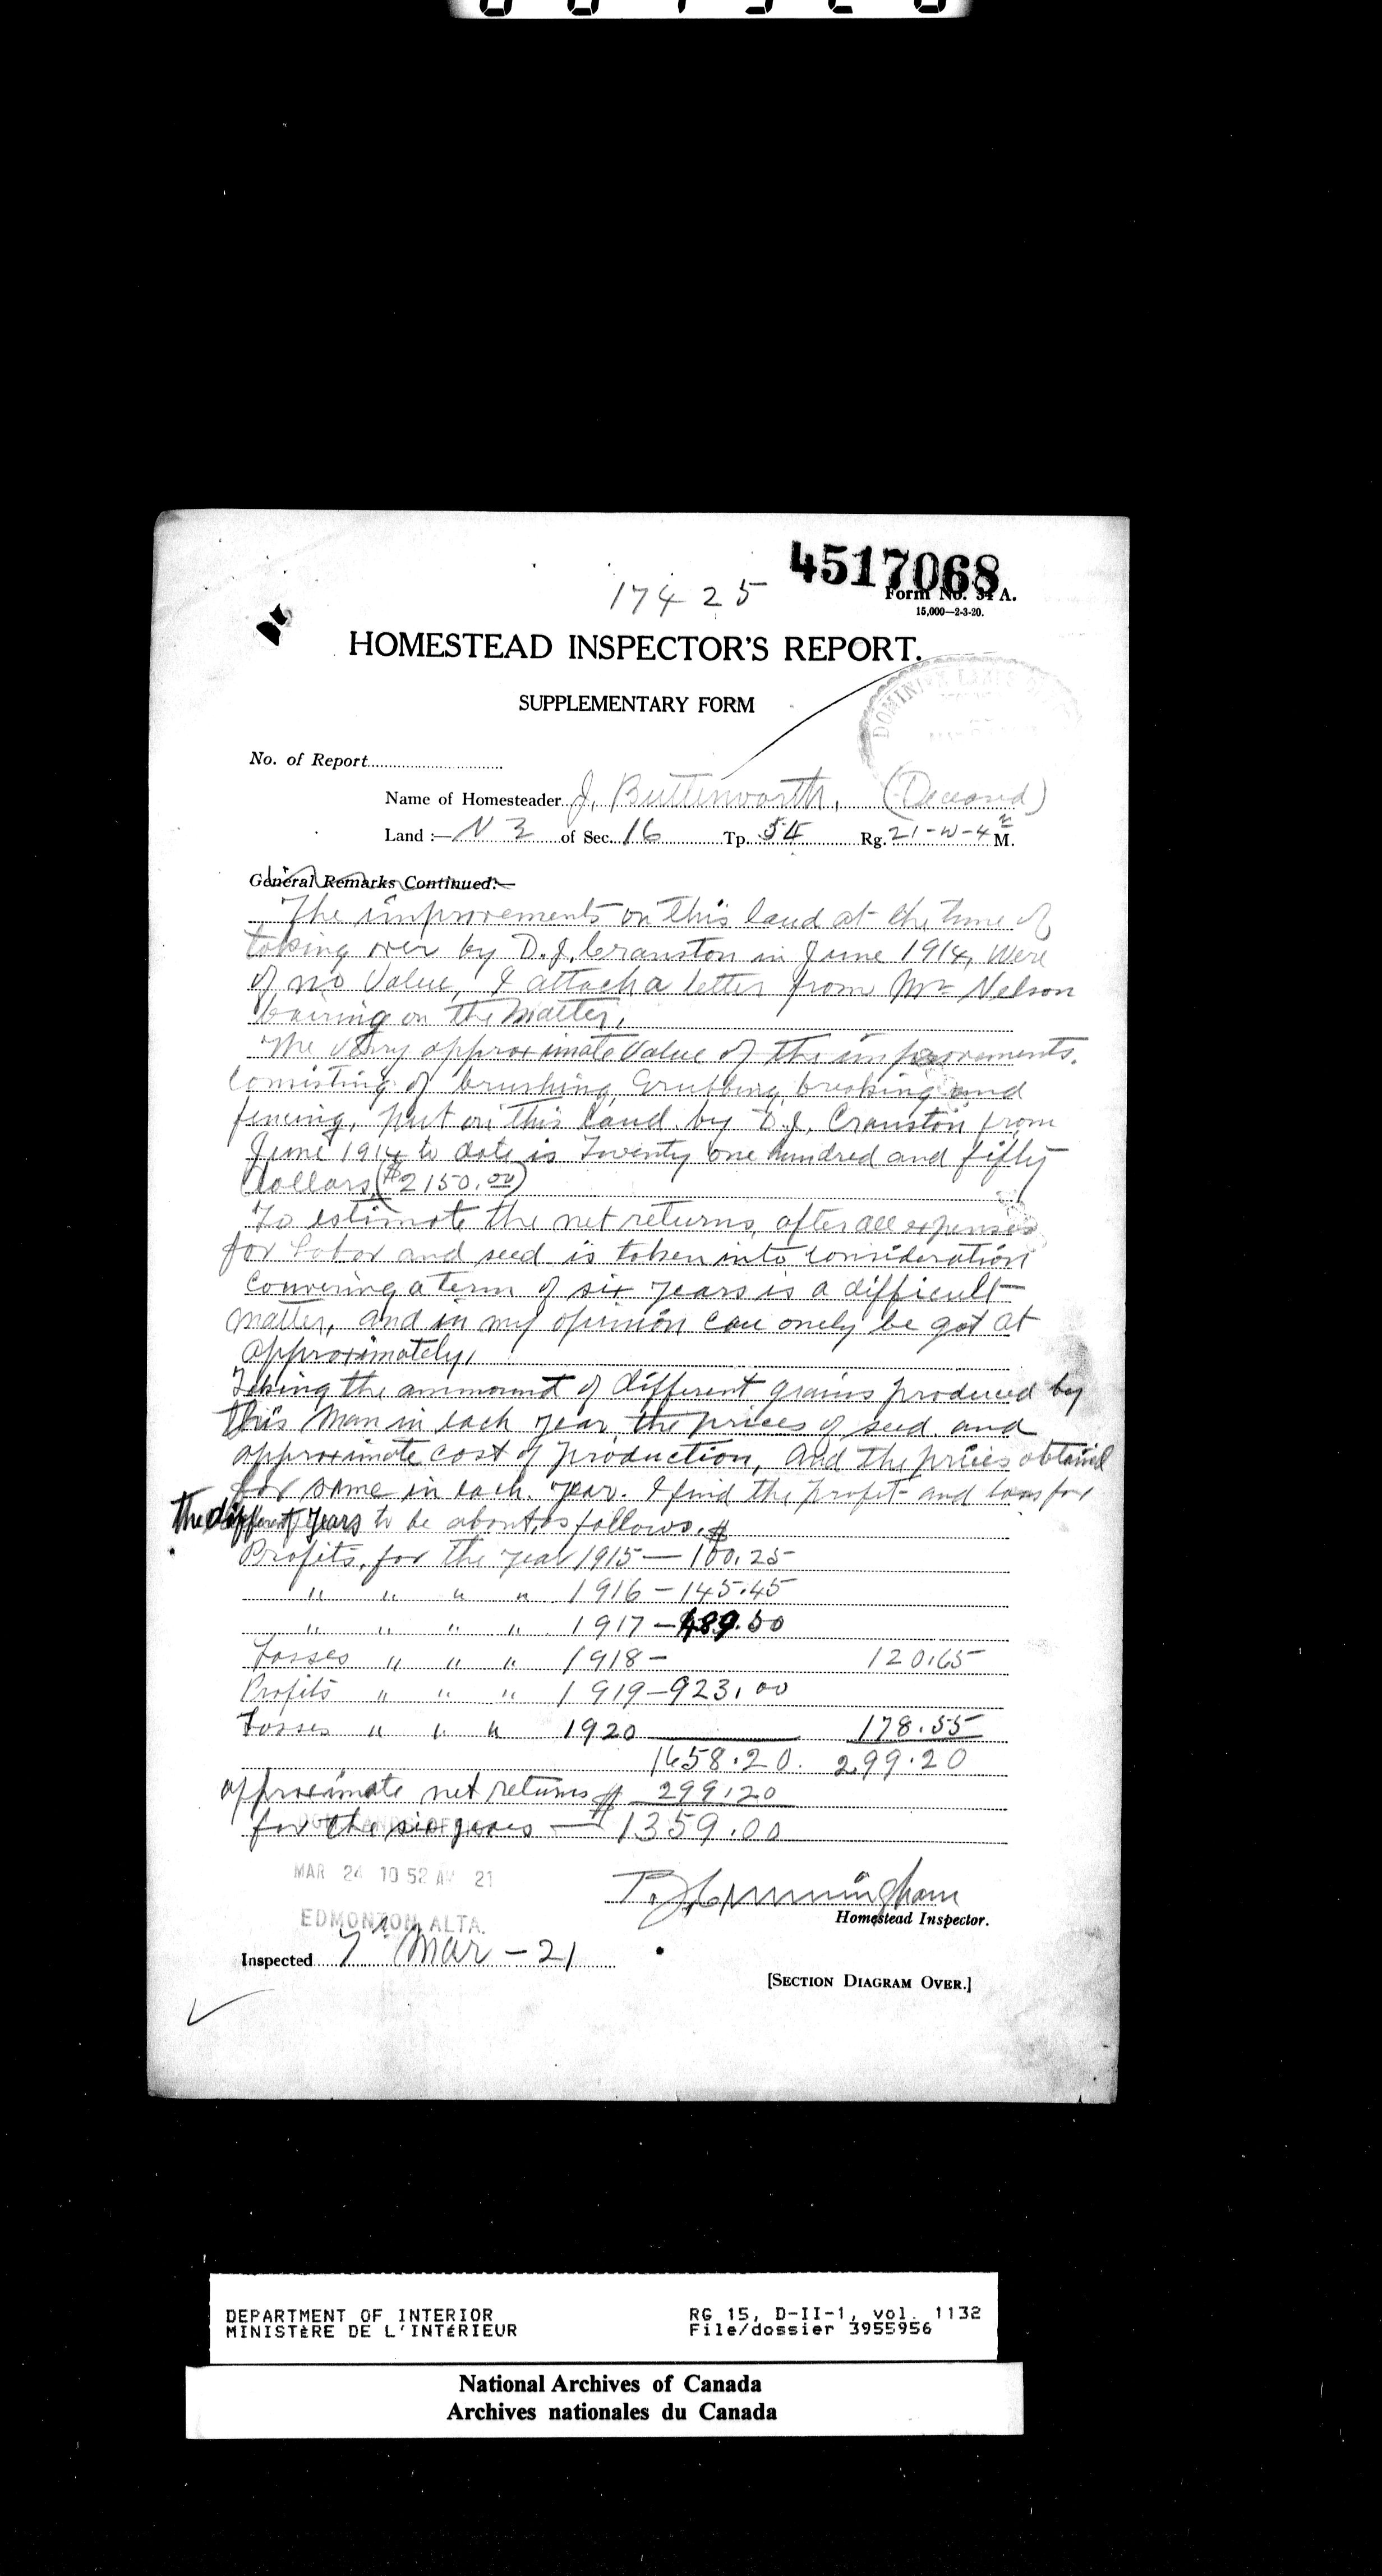 4517068
17425
Form No. 34 A.
15,000—2-3-20.
HOMESTEAD INSPECTOR'S REPORT.
SUPPLEMENTARY FORM
DOMINION LANDS
No. of Report
Name of Homesteader J. Butterworth, (Deceasd)
Land :— N 2 of Sec. 16 Tp. 54 Rg. 21-W-4 M.
General Remarks Continued:—
The improvements on this land at the time of
taking over by D. J. Cranston in June 1914, were
of no Value, I attach a letter from Mr Nelson
bairing on the matter,
The very approximate Value of the improvements.
consisting of brushing, Grubbing, breaking and
fencing, put on this land by D. J. Cranston from
June 1914 to date is Twenty one hundred and fifty
Dollars ($2150.00)
To estimate the net returns, after all expenses
for Labor and seed is taken into consideration
Couvering a term of six years is a difficult
matter, and in my opinion can onely be got at
approximately,
Taking the ammount of different grains produced by
this Man in each year, the prices of seed and
approximate cost of production, and the prices obtained
for same in each year. I find the profit and loss for
the different years to be about as follows.
Profits, for the year 1915 — $100.25
" " " " 1916 — 145.45
" " " " 1917 — 489.50
Losses " " " 1918 — 120.65
Profits " " " 1919 — 923.00
Losses " " " 1920 178.55
1658.20. 299.20
approximate net returns $ 299.20
for the six years — 1359.00
MAR 24 10 52 AM 21
EDMONTON, ALTA.
Cunningham
Homestead Inspector.
Inspected 7th Mar - 21
[SECTION DIAGRAM OVER.]
DEPARTMENT OF INTERIOR RG 15, D-II-1, vol. 1132
MINISTÈRE DE L'INTÉRIEUR File/dossier 3955956
National Archives of Canada
Archives nationales du Canada